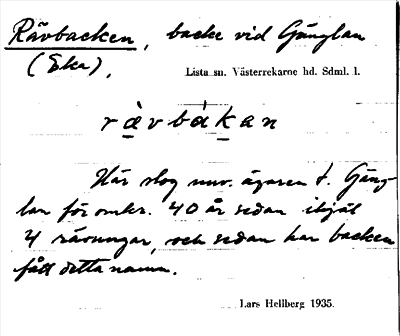 Rävbacken, backe vid Gånglan
(Eka).
Lista sn. Västerrekarne hd. Sdml. l.
rävbàkan
Här slog nuv. ägaren t. Gång-
lan för omkr. 40 år sedan ihjäl
4 rävungar, och sedan har backen
fått detta namn.
Lars Hellberg 1935.